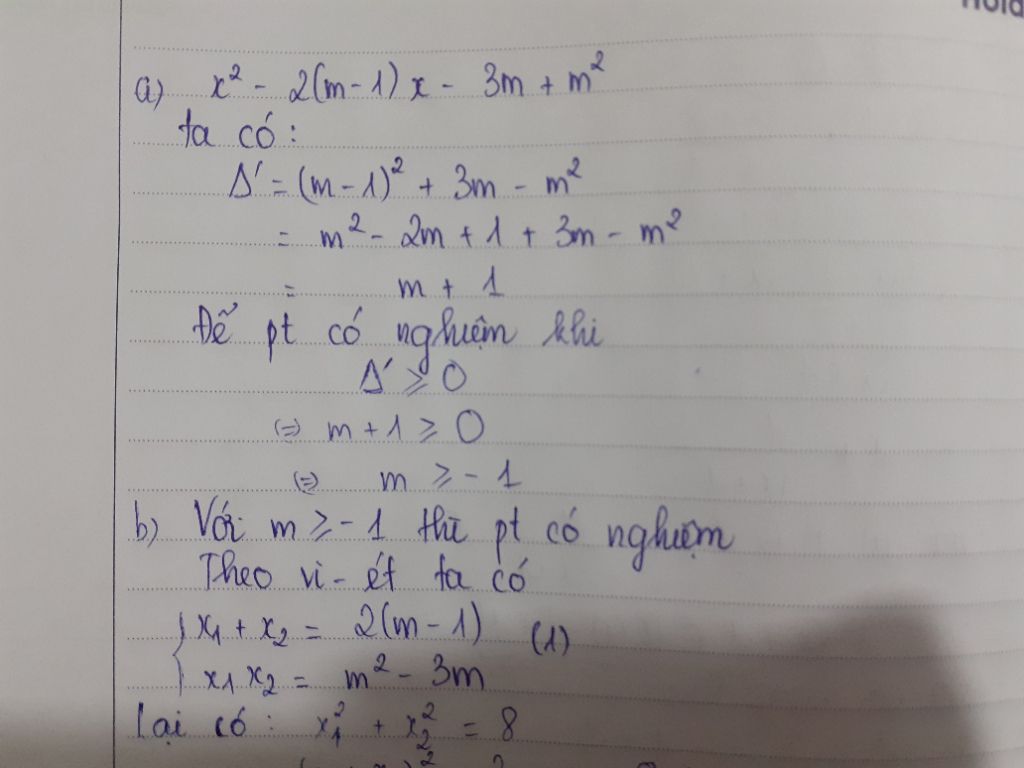 a) x² - 2(m-1)x - 3m + m²
ta có:
Δ' = (m-1)² + 3m - m²
= m² - 2m + 1 + 3m - m²
= m + 1
Để pt có nghiệm khi
Δ' ≥ 0
(=) m + 1 ≥ 0
(=) m ≥ -1
b) Với m ≥ -1 thì pt có nghiệm
Theo vi-ét ta có
{ x₁ + x₂ = 2(m-1) (1)
x₁ x₂ = m² - 3m
Lại có: x₁² + x₂² = 8